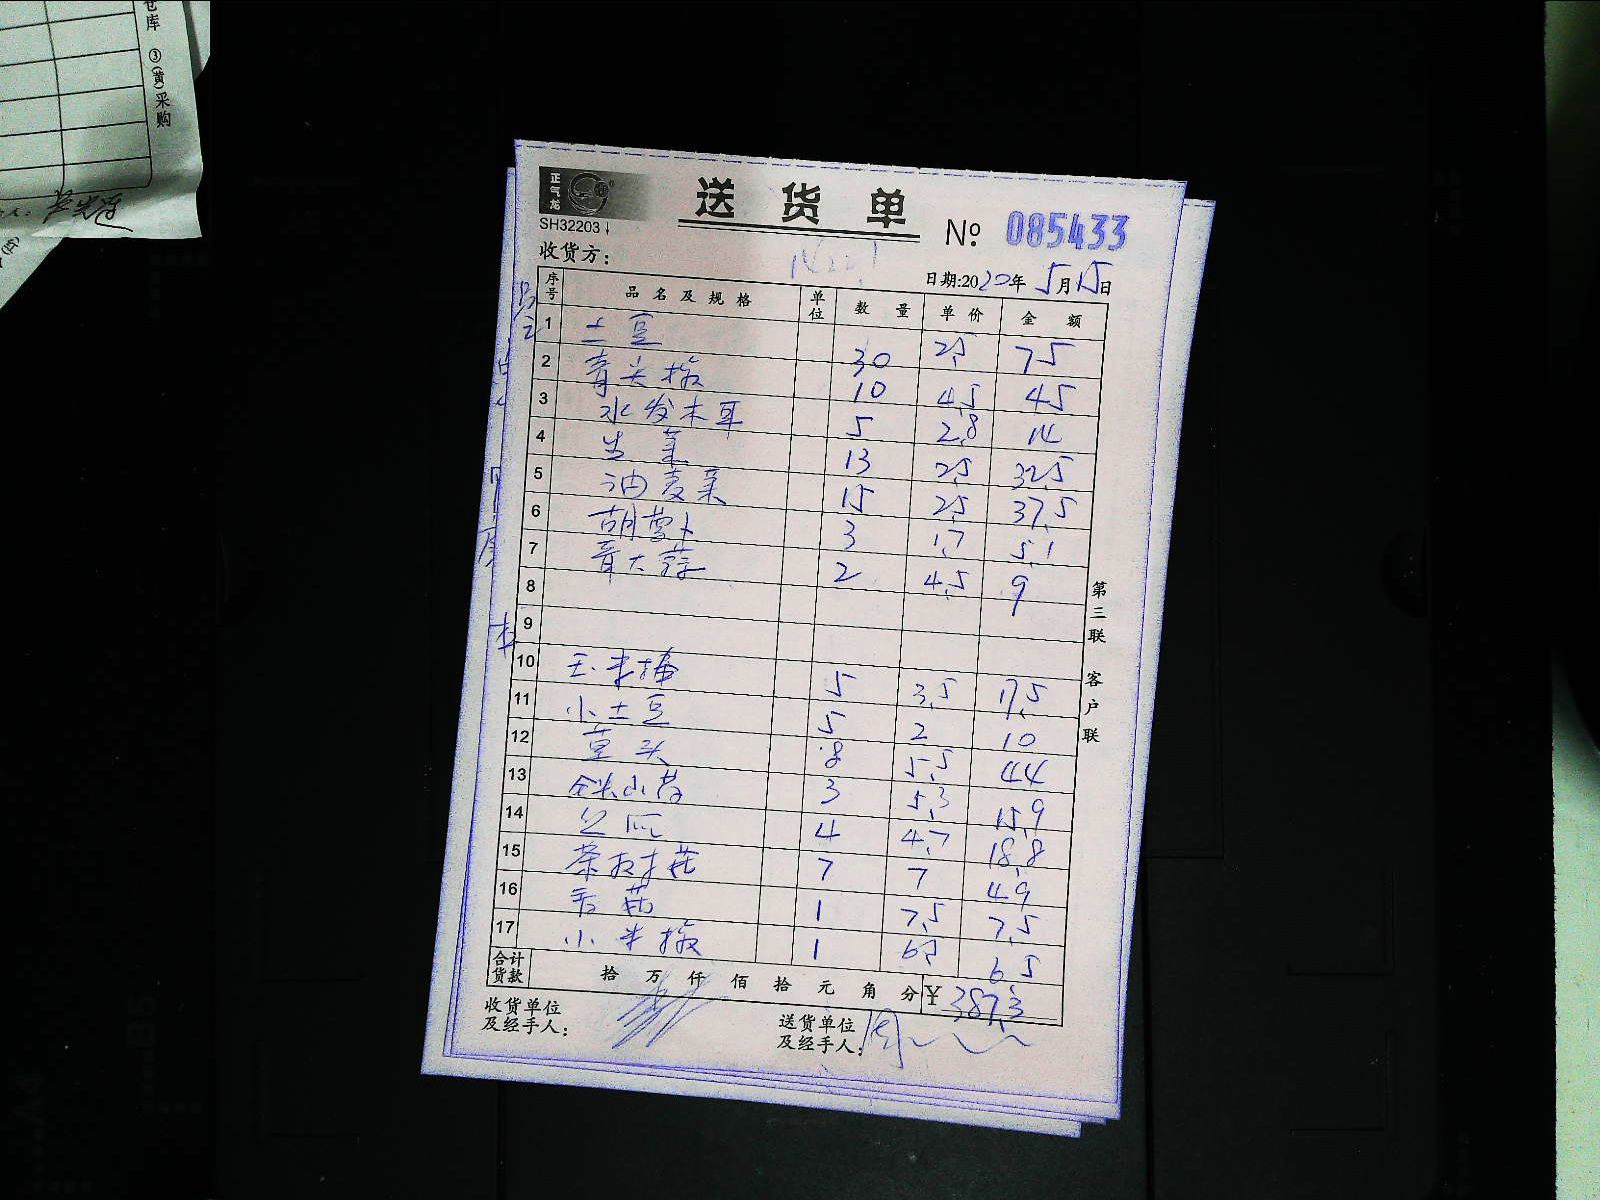 仓库 ③(黄)采购
正气龙
送货单
SH32203
№ 085433
收货方：
日期:2020年5月15日
序号 品名及规格 单位 数量 单价 金额
1 土豆 30 2.5 75
2 青尖椒 10 4.5 45
3 水发木耳 5 2.8 14
4 生菜 13 2.5 32.5
5 油麦菜 15 2.5 37.5
6 胡萝卜 3 1.7 5.1
7 青大蒜 2 4.5 9
8
9
10 玉米棒 5 3.5 17.5
11 小土豆 5 2 10
12 芋头 8 5.5 44
13 铁山药 3 5.3 15.9
14 4 4.7 18.8
15 茶树菇 7 7 49
16 香菇 1 7.5 7.5
17 小米椒 1 6.5 6.5
合计货款 拾万仟佰拾元角分 ¥387.3
收货单位及经手人：
送货单位及经手人：
第三联 客户联